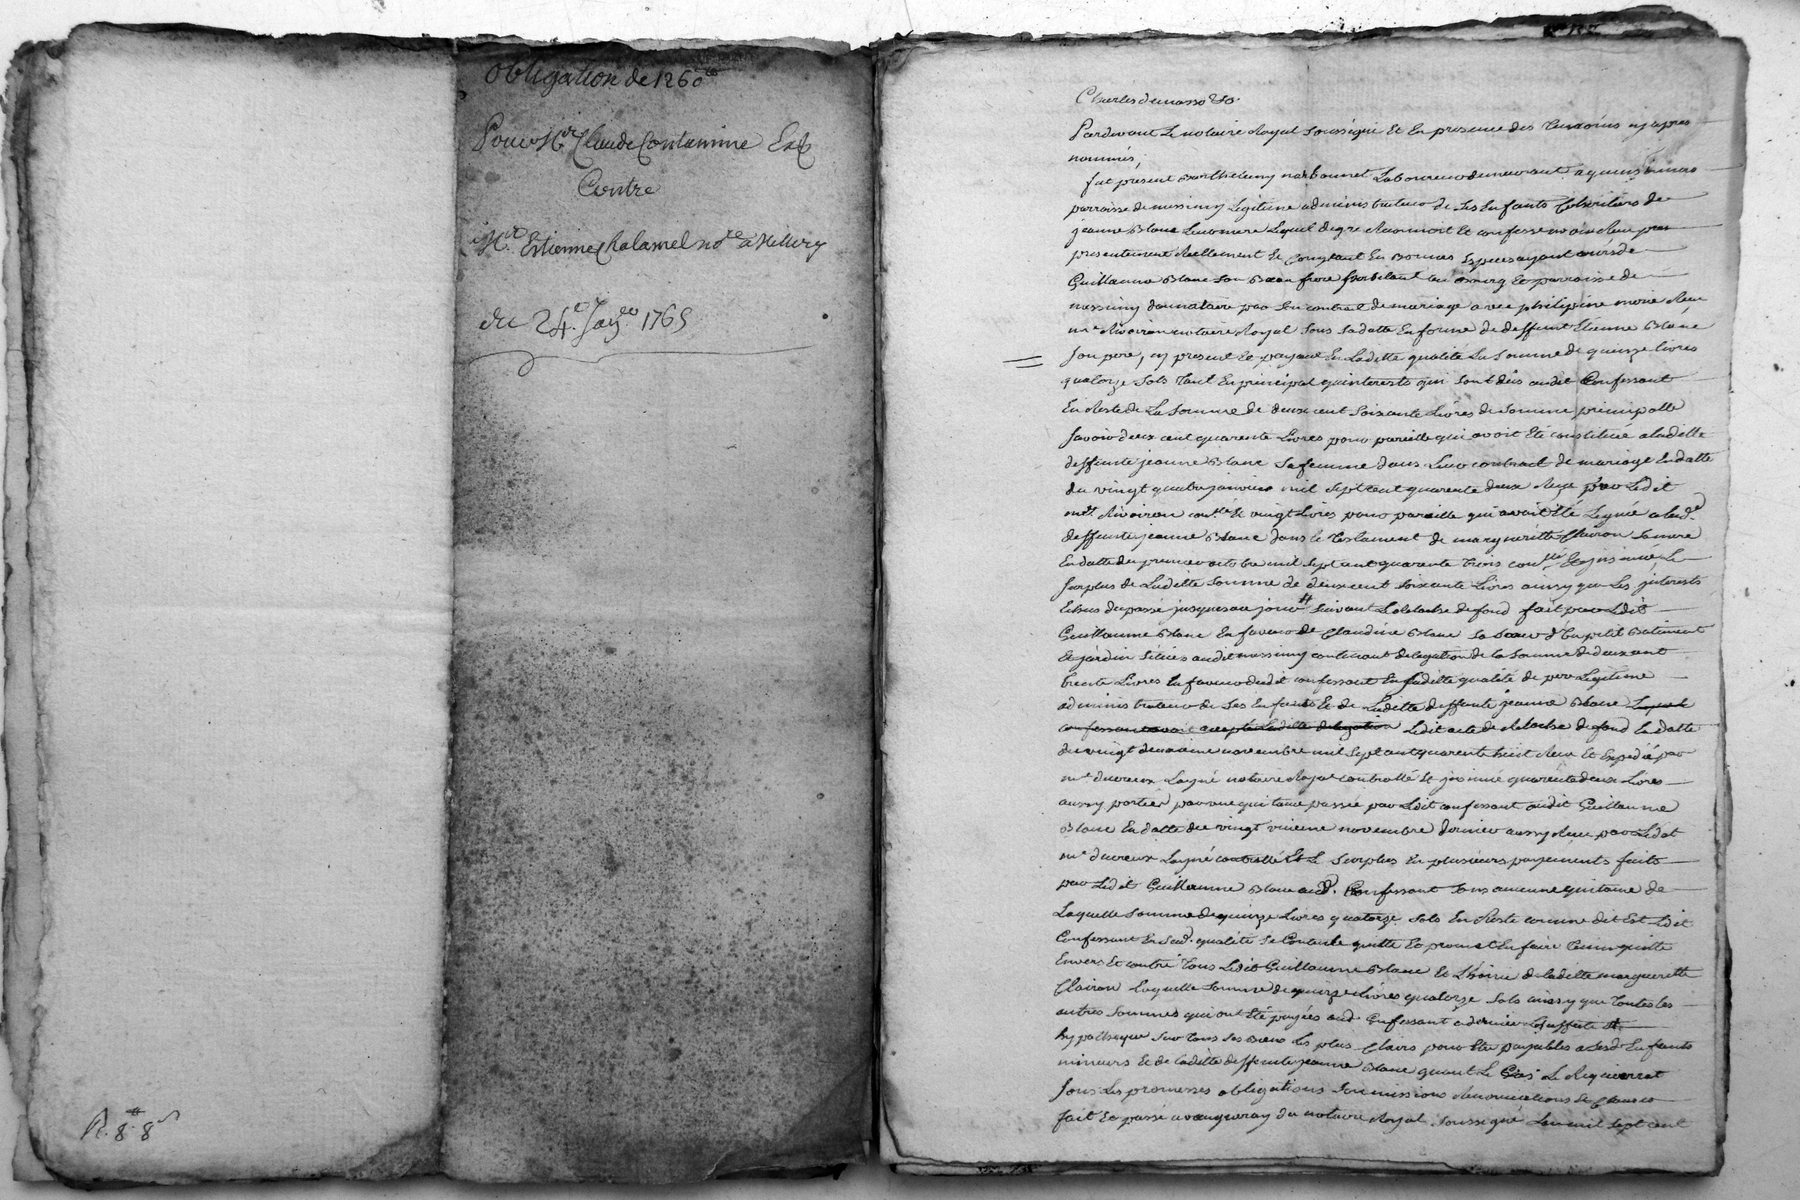 obligation de 1260 ᵗᵗ
Pour Mr. Claude Contamine
Contre
Me. Estienne Chalamel nore a Millery
du 24e. Janer. 1765
R. 8 ᵗᵗ 8 s
Charles dumasso
Pardevant Le notaire Royal soussigné Et En presence des temoins cy apres
nommés,
fut présent Barthelemy narbonnet Laboureur demeurant a
parroisse de messimy Legitime administrateur de ses Enfants Cohéritiers de
jeanne Blanc Leur mere Lequel de gré Reconnoit Et confesse avoir Reçu
presentement Reellement Et Comptant En Bonnes Especes ayant cours de
Guillaume Blanc son Beau frere habitant au Bourg Et parroisse de
messimy donnataire par son contrat de mariage avec philipine Reçu
me Rivoiron notaire Royal sous sa datte En forme de deffunt Etienne Blanc
son pere, cy present Et payant En Ladite qualité La somme de quinze livres
quatorze sols tant En principal qu'interests qui sont dûs audit Confessant
En Reste de La somme de deux cent soixante Livres de somme principalle
savoir deux cent quarente Livres pour pareille qui avoit Eté constituée a ladite
deffunte jeanne Blanc sa femme dans Leur contract de mariage En datte
du vingt quatre janvier mil sept cent quarente deux Reçu par Ledit
me. Rivoiron conllé Et vingt Livres pour pareille qui avoit Eté Leguée a lad.
deffunte jeanne Blanc dans le testament de margueritte Clairon sa mere
En datte du premier octobre mil sept cent quarente trois conllé Et insinué, Le
surplus de Ladite somme de deux cent soixante Livres ainsy que Les interests
Echus du passé jusques au jour suivant Lalbenevise de fond fait par Ledit
Guillaume Blanc En faveur de Claudine Blanc sa soeur d'un petit Batiment
Et jardin situés audit messimy contenant delegation de la somme de deux cent
trente Livres En faveur dudit confessant En Ladite qualité de pere Legitime
administrateur de ses Enfants Et de Ladite deffunte jeanne Blanc Lequel
confessant avoit accepté Ladite delegation Ledit acte de Relache de fond En datte
du vingt deuxieme novembre mil sept cent quarente huit Reçu Et Expedié par
me ducreux Layné notaire Royal controllé Et insinué quarente deux Livres
aussy portées par une quittance passée par Ledit confessant audit Guillaume
Blanc En datte du vingt novembre dernier aussy Reçu par Ledit
me ducreux Layné controllé Et Le surplus En plusieurs payements faits
par Ledit Guillaume Blanc aud. Confessant sans aucune quittance de
Laquelle somme de quinze Livres quatorze sols En Reste comme dit Est Ledit
Confessant En sad. qualité se Contente quitte Et promet En faire tenir quitte
Envers Et contre tous Ledit Guillaume Blanc Et L'hoirie de ladite margueritte
Clairon Laquelle somme de quinze Livres quatorze sols ainsy que toutes les
autres sommes qui ont Eté payées aud. Confessant
hypotheque sur tous ses Biens Les plus Clairs pour Etre payables a sesd. Enfants
mineurs Et de ladite deffunte jeanne Blanc quant Le Cas Le Requierrat
sous Les promesses obligations soumissions Renonciations Et Clauses
fait Et passé a vaugneray du notaire Royal soussigné Lan mil sept cent